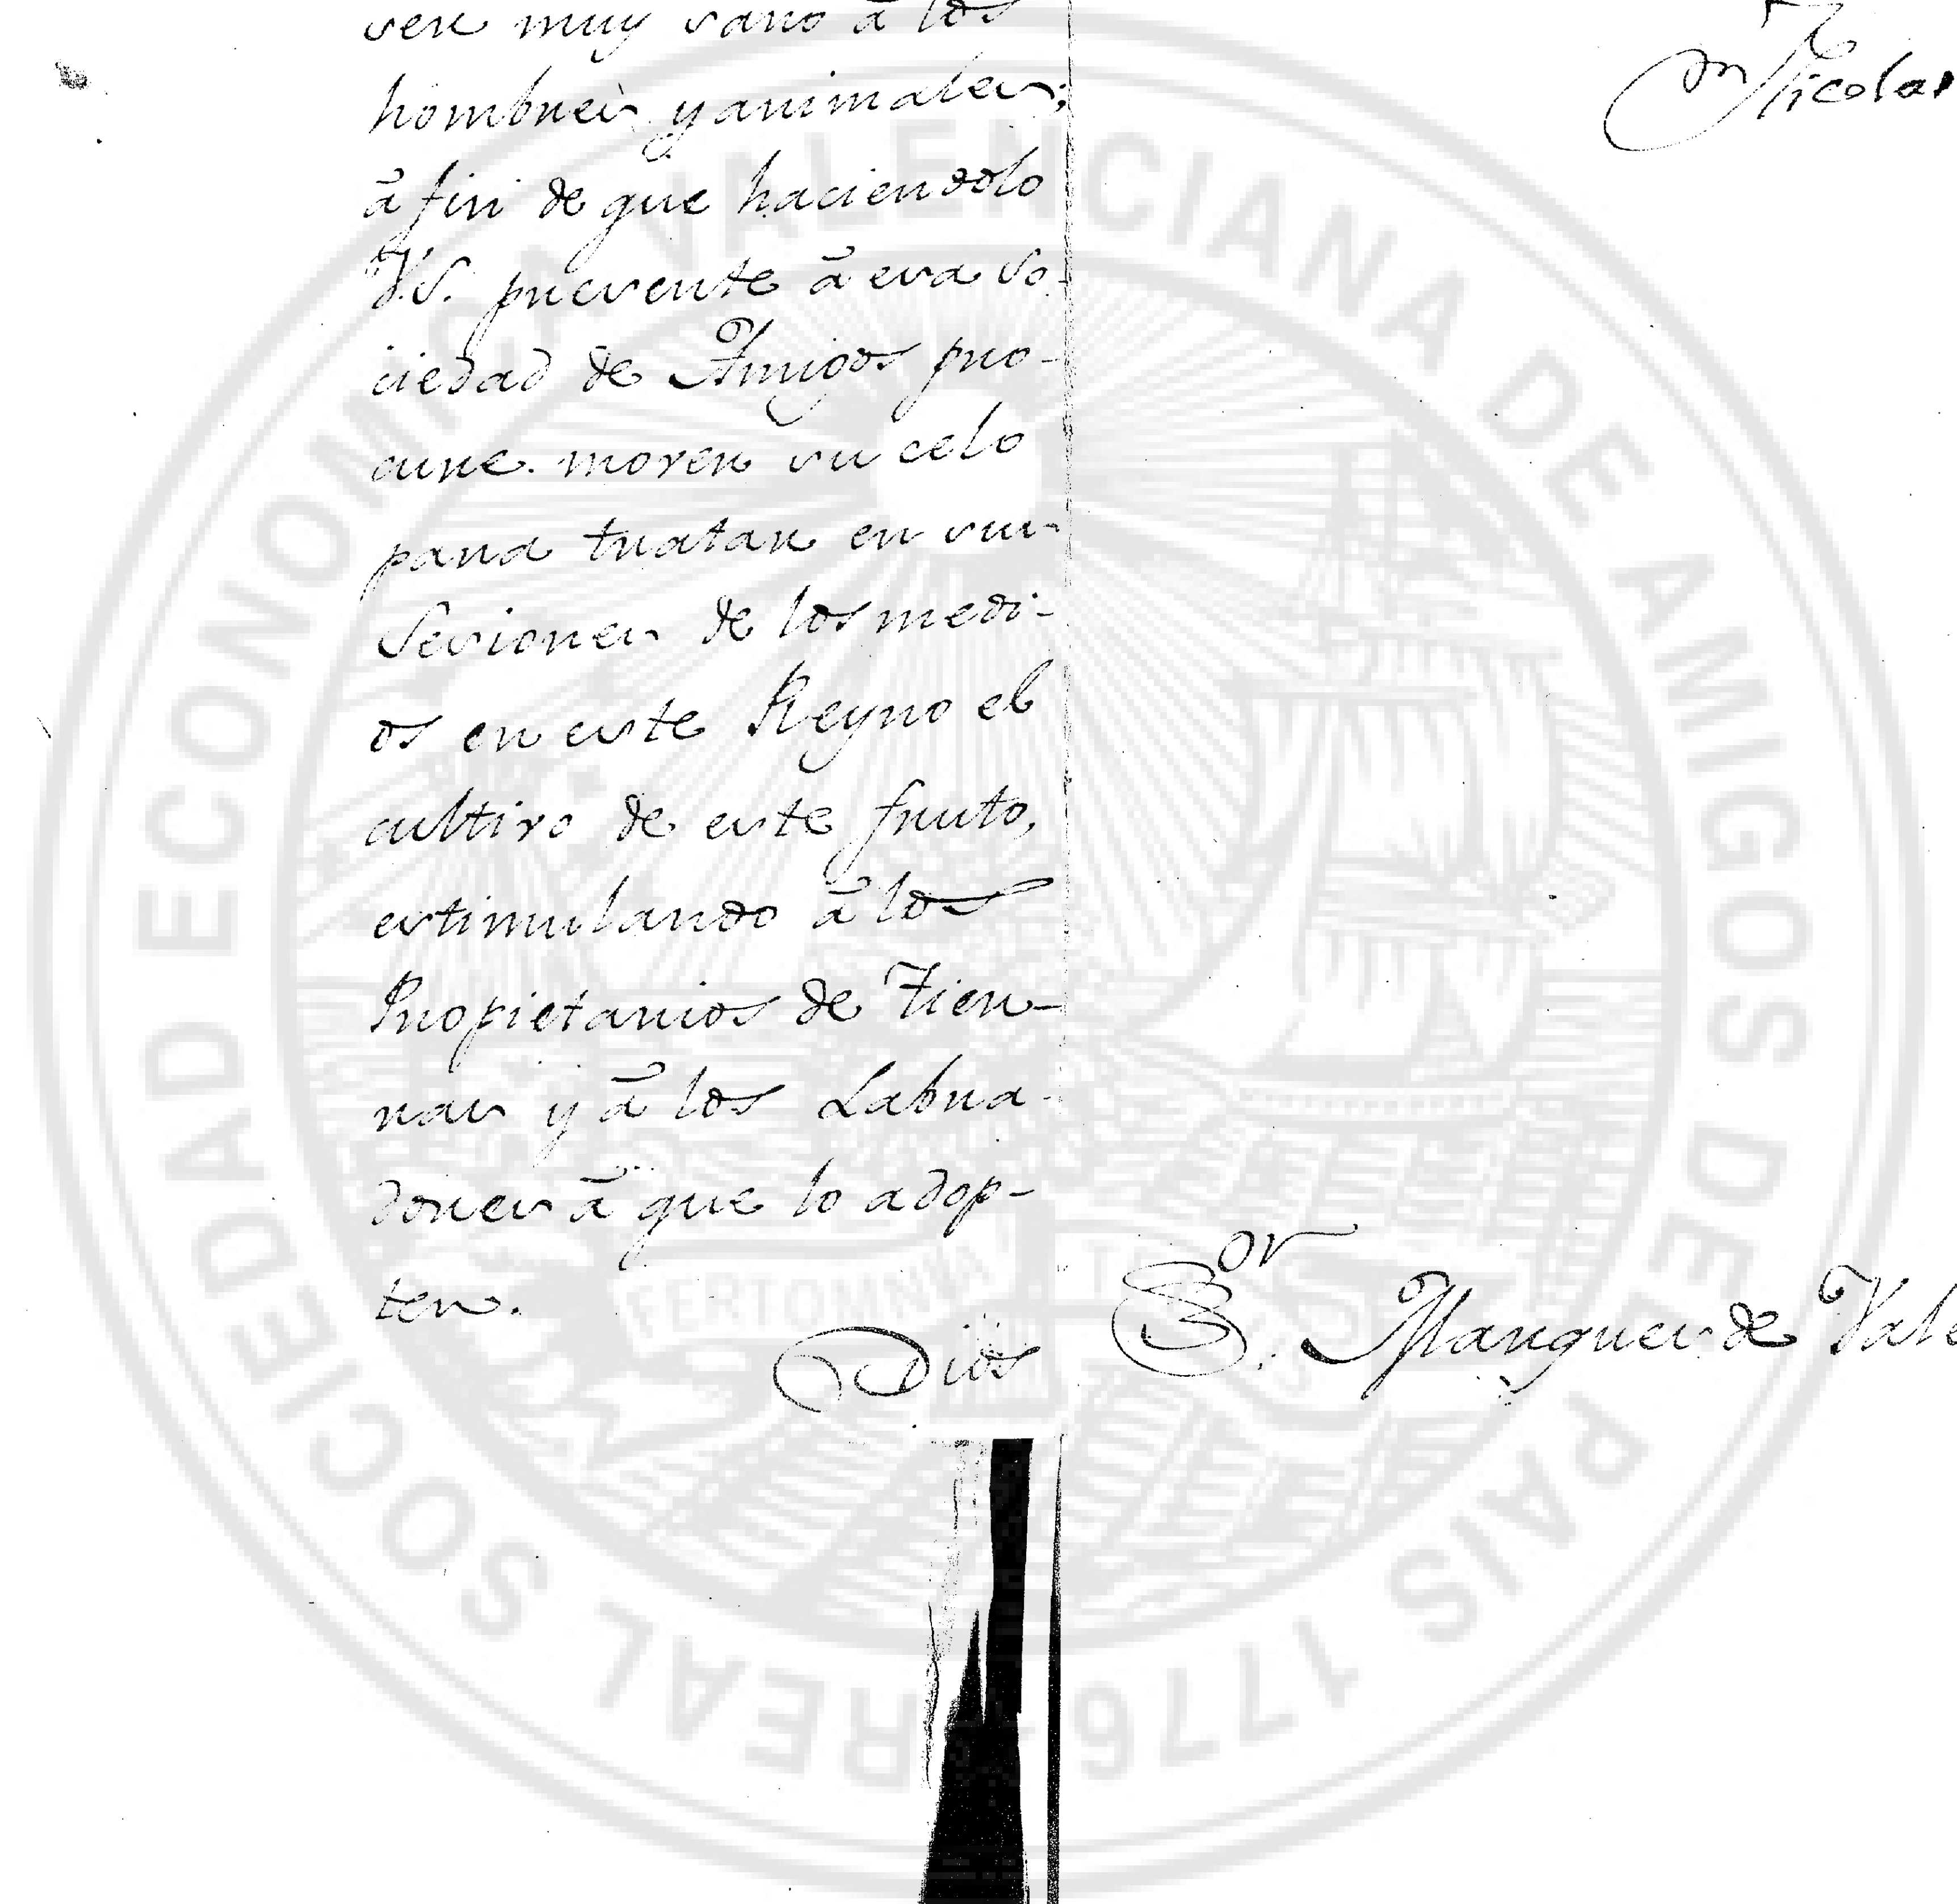 ser muy sano â los
hombres y animales;
â fin de que haciendolo
V.S. presente â esa So-
ciedad de Amigos pro-
cure mover su celo
para tratar en sus
Sesiones de los medi-
os en este Reyno el
cultivo de este fruto,
estimulando â los
Propietarios de Tier-
ras y â los Labra-
dores â que lo adop-
ten.
Dios
Nicolas
Sor. Marques de Vale
REAL SOCIEDAD ECONOMICA VALENCIANA DE AMIGOS DEL PAIS 1776